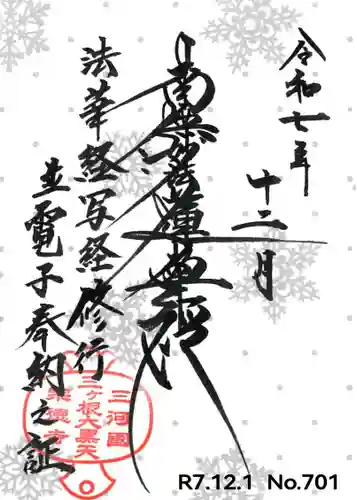 令和七年
十二月
南無妙法蓮華経
法華経写経修行
並 子奉納之証
三河國
三ヶ根大黒天
R7.12.1 No.701